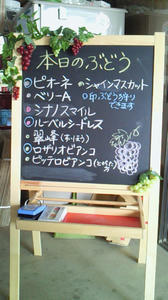 本日のぶどう
ピオーネ
シャインマスカット
ベリーA
○印ぶどう狩り
できます
シナノスマイル
ルーベルシードレス
翠峰(すいほう)
ロザリオビアンコ
ピッテロビアンコ